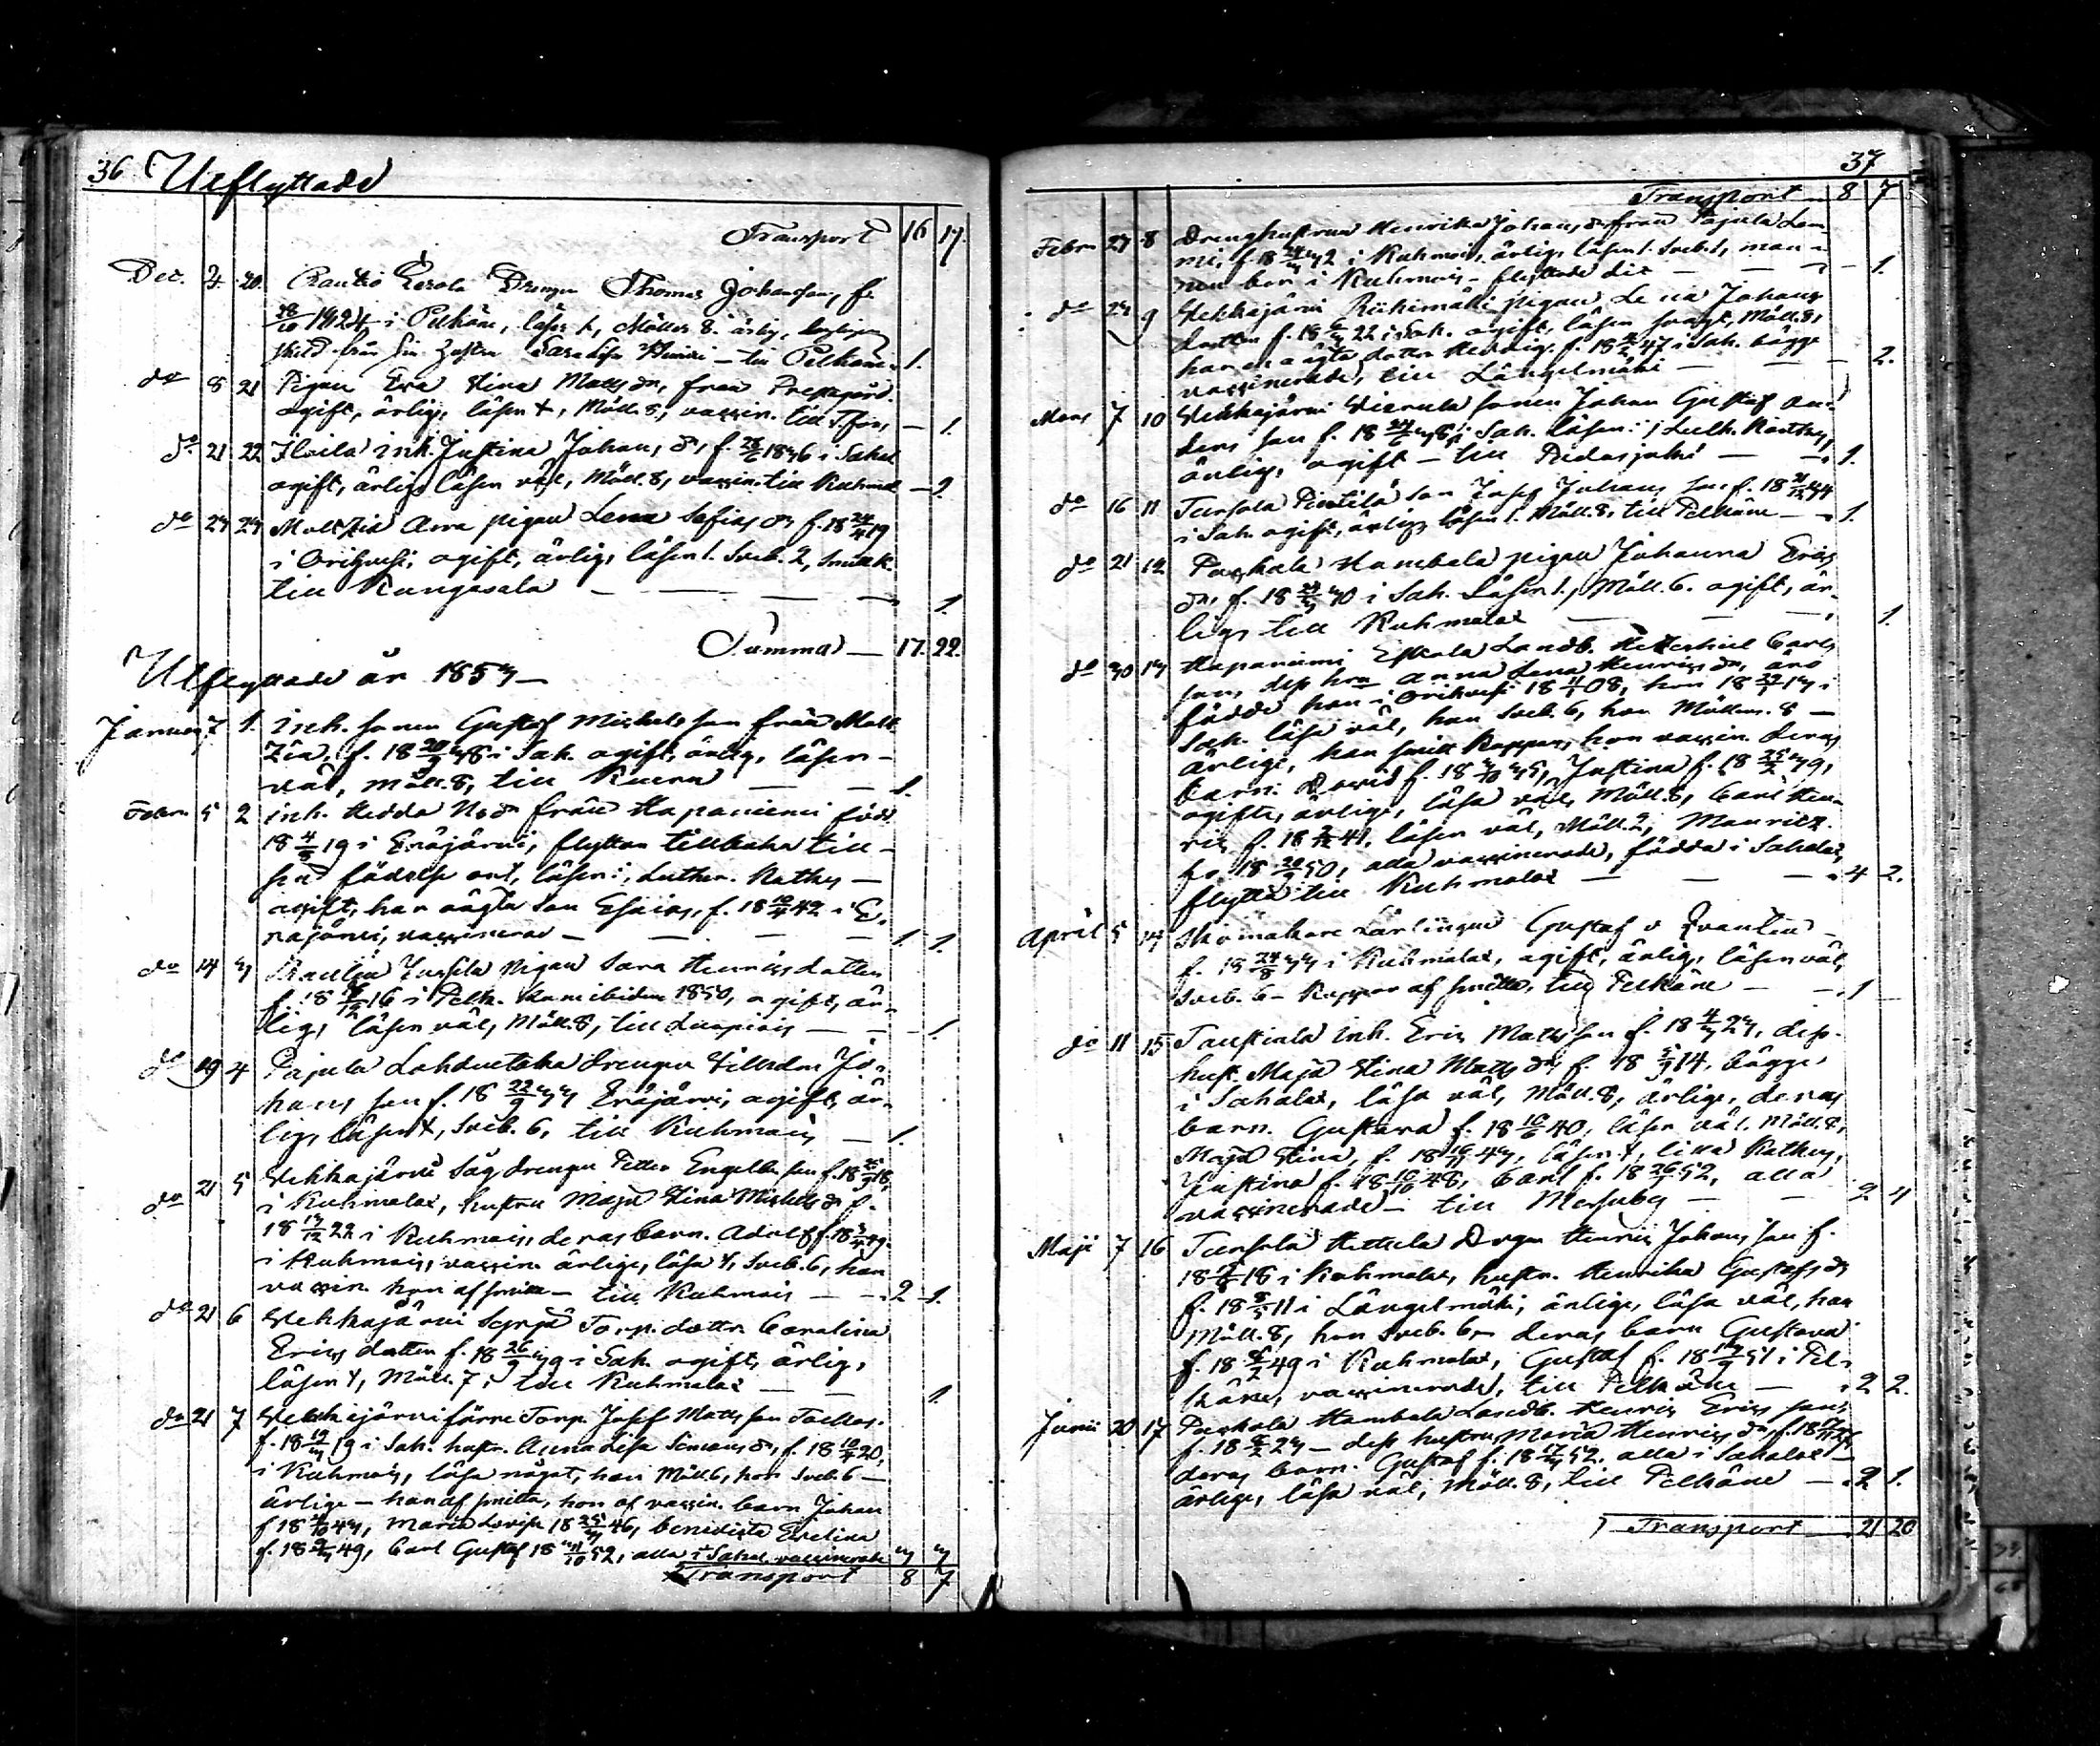 36 Utflyttade
Transport 16 17.
Dec. 20. Rautio Eerola Drengen Thomas Johansson, f.
1824 i Pelkäne, läser +, Möller 8. ärlig, lagligen
skild från sin hustru – till Pelkäne. 1.
do 8 21 Pigan Eva Stina Matts dr, från Prestgård.
ogift, ärlig, läser +, Möll. 8, vaccin. till T.fors – 1.
do 21 22 Iloila inh. Justina Johans dr, f. i Sahal.
ogift, ärlig, läser väl, Möll. 8, vaccin. till Kuhmal. – 1.
do 23 23 Moltzia Arra pigan Lena Sofias dr f. 18 24/4 19
i Orihvesi, ogift, ärlig, läser 1. Sveb. 2, smitt k.
till Kangasala – – – 1.
Summa – 17. 22.
Utflyttade år 1853 –
Januari 7 1. inh. sonen Gustaf Mickels son från Molt
Zia, f. 18 i Sah. ogift, ärlig, läser –
väl, Möll. 8, till Kuru – – 1.
Febr. 5 2 inh. Hedda Ns dr från Hapaniemi född
18 4/8 19 i Eräjärvi, flyttar tillbaka till –
sin födelse ort, läser i Luther. Kathes –
ogift, har oägta son Esaias, f. 18 10/4 42 i E-
räjärvi, vaccinerad – – – 1. 1.
do 14 3 Rautia Jussila pigan Sara Henrics dotter
f. 18 16 i Pelk. kom ibidem 1850, ogift, är-
lig, läser väl, Möll. 8, till Luopiois – – 1.
do 19 4 Pajula Lahduetaka drengen Vilhelm Jo-
hans son f. 18 22/9 33 Eräjärvi, ogift, är-
lig, läser +, Sveb. 6, till Kuhmois – 1.
do 21 5 Vehkajärvi Såg drengen Petter Engelbr. son f. 18
i Kuhmalax, hustru Maja Stina Mickels dr f.
18 22 i Kuhmois, deras barn. Adolf f. 18 49
i Kuhmois, vaccin. ärlige, läsa +, Sveb. 6, han
vaccin. hon af smitta – till Kuhmois – – 2 1.
do 21 6 Vehkajärvi Syrjä Torp. dottr. Carolina
Erics dotter f. 18 26/9 39 i Sah. ogift, ärlig,
läser +, Möll. 7, till Kuhmalax – – 1.
do 21 7 Vehkajärvi förre Torp. Josef Matts son
f. 18 19/3 19 i Sah. hustr. Anna Lisa Simons dr, f. 18 10/4 20,
i Kuhmois, läsa något, han Möll. 6, hon Sveb. 6 –
ärlige – han af smitta, hon af vaccin. barn Johan
f. 18 43, Maria Lovisa 18 46, Benedicta Evelina
f. 18 49, Carl Gustaf 18 52, alla i Sahal. vaccinerade 3 3
Transport 8 7
37
Transport – 8 7
Febr. 23 8 Dreng hustrun Henrika Johans dr från Pajula Lam
mi, f. 18 i Kuhmois, ärlig, läser 1. Sveb. 1, man-
nen bor i Kuhmois – flyttade dit – – 1.
do 23 9 Vehkajärvi Riihimäki pigan Lena Johans
dotter f. 18 22 i Sah. ogift, läser svagt, Möll. 8,
har en oägta dotter Hedvig f. 18 47 i Sah. bägge
vaccinerade, till Längelmäki – – 2.
Mars 7 10 Vehkajärvi Vierula sonen Johan Gustaf An-
ders son f. 18 i Sah. läser i Luth. Kathes,
ärlig, ogift – till Pidasjoki – – 1.
do 16 11 Tursola Pentilä son Josef Johans son f. 18
i Sah. ogift, ärlig, läser 1. Möll. 8, till Pelkäne – 1.
do 21 12 Pakkala Hambala pigan Johanna Erics
dr, f. 18 30 i Sah. läser 1., Möll. 6. ogift, är-
lig, till Kuhmalax – – 1.
do 30 13 Hapaniemi Eskola Landb. Heterhiel Carls
son, dess hru Anna Lena Henrics dr, äro
födde han i Orihvesi 18 08, hon 18 13 i
Sah. läsa väl, han Sveb. 6, hon Möller. 8 –
ärlige, han smitt koppor, hon vaccin. deras
barn. David f. 18 35, Justina f. 18 39,
ogifte, ärlige, läsa väl, Möll. 8, Carl Hen-
ric f. 18 41, läser väl, Möll. 2, Mauritz
f. 18 50, alla vaccinerade, födda i Sahalax,
flytta till Kuhmalax – – – 4 2.
April 5 14 Skomakare Lärlingen Gustaf
f. 18 24/8 33 i Kuhmalax, ogift, ärlig, läser väl,
Sveb. 6 – koppor af smitta, till Pelkäne – – 1
do 11 15 Taustiala inh. Eric Matts son f. 18 4/3 23, dess
hust. Maja Stina Matts dr f. 18 14, bägge
i Sahalax, läsa väl, Möll. 8, ärlige, deras
barn. Gustava f. 18 40, läser väl, Möll. 8,
Maja Stina, f. 18 43, läser +, lilla Kathes,
Justina f. 18 10/10 48, Carl f. 18 52, alla
vaccinerade – till Messuby – – 2 4
Maji 7 16 Tursola Hettula Drgn Henric Johans son f.
18 18 i Kuhmalax, hustr. Henrika Gustafs dr
f. 18 11 i Längelmäki, ärlige, läsa väl, han
Möll. 8, hon Sveb. 6 – deras barn Gustava
f. 18 49 i Kuhmalax, Gustaf f. 18 51 i Pel-
käne, vaccinerade, till Pelkäne – 2 2.
Junii 20 17 Pakkala Hambala Landb. Henric Erics son,
f. 18 23 – dess hustru Maria Henrics dr, f. 18
deras barn. Gustaf f. 18 52. alla i Sahalax –
ärlige, läsa väl, Möll. 8, till Pelkäne – 2 1.
Transport – 21 20